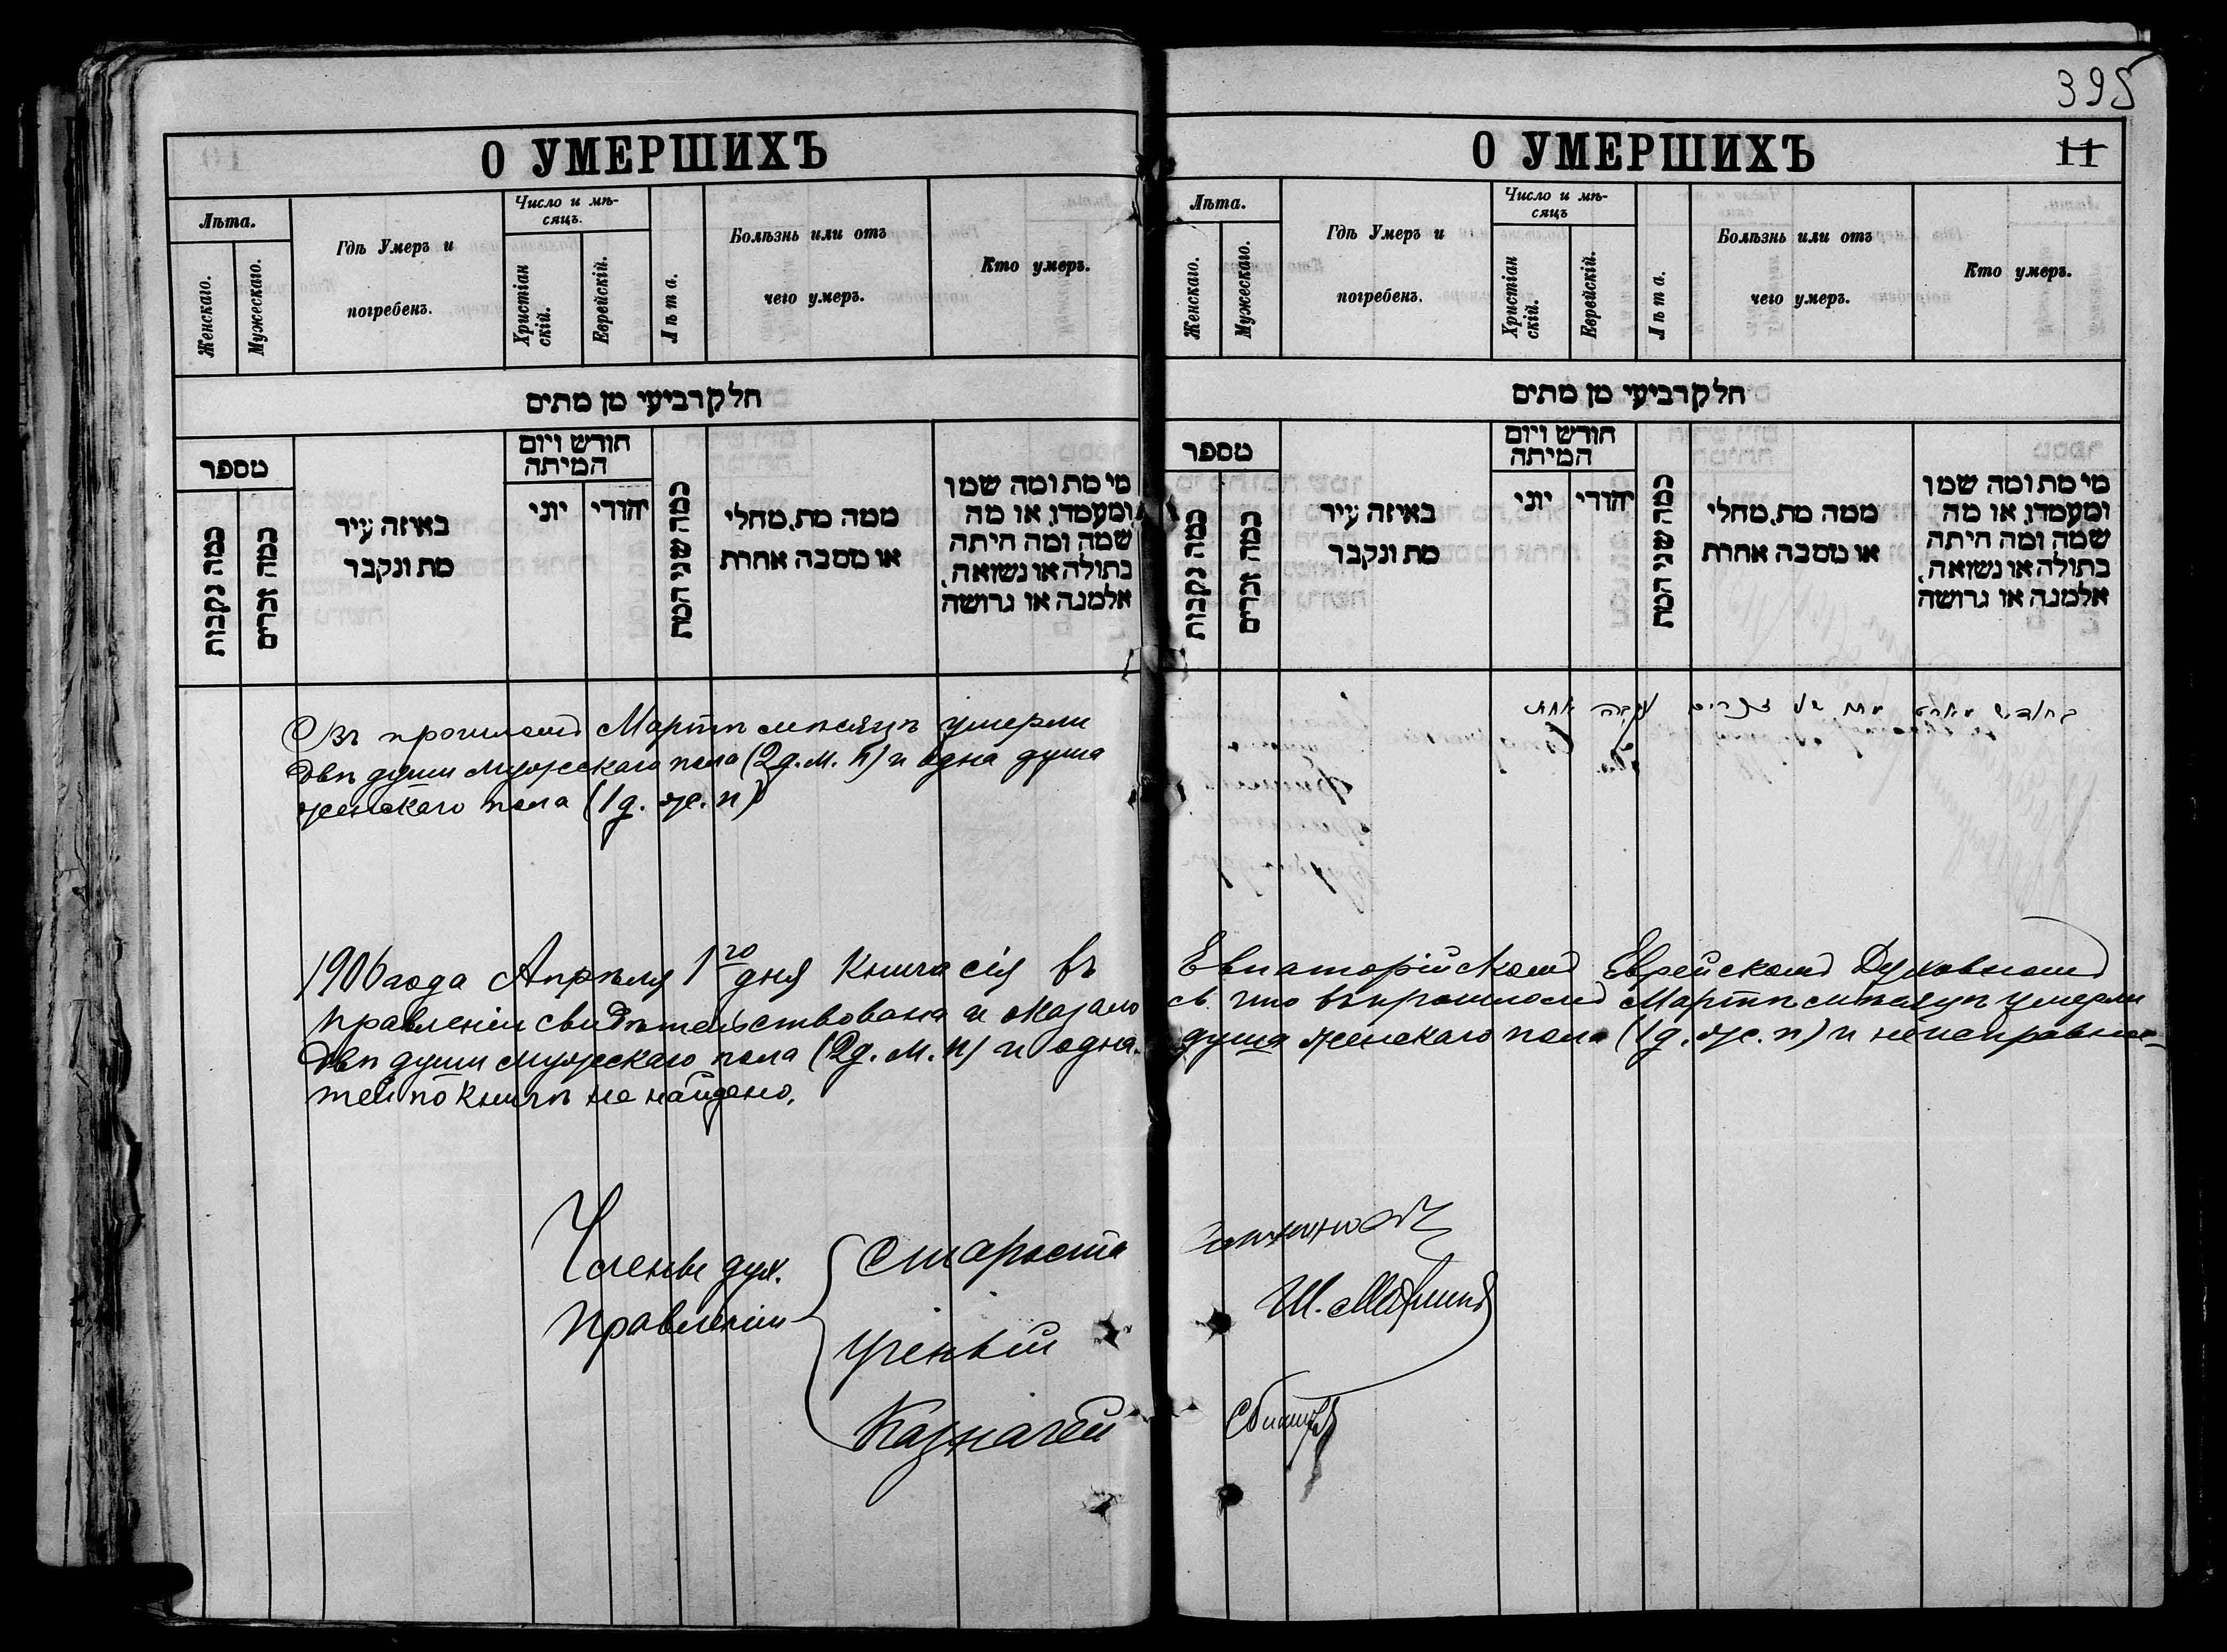 395
О УМЕРШИХЪ
Лѣта.
Женскаго.
Мужескаго.
Гдѣ Умеръ и
погребенъ.
Число и мѣ-
сяцъ.
Христіан
скій.
Еврейскій.
Лѣта.
Болѣзнь или отъ
чего умеръ.
Кто умеръ.
חלק רביעי מן מתים
מספר
כמה נקבות
כמה זכרים
באיזה עיר
מת ונקבר
חודש ויום
המיתה
יוני
יהודי
כמה שני המת
ממה מת, מחלי
או מסבה אחרת
מי מת ומה שמו
ומעמדו, או מה
שמה ומה היתה
בתולה או נשואה,
אלמנה או גרושה
Въ прошломъ Мартѣ мѣсяцѣ умерли
двѣ души мужескаго пола (2 д. м. п) и одна душа
женскаго пола (1 д. ж. п)
1906 года Апрѣля 1го дня книга сія въ
правленіи свидѣтельствована и оказало
двѣ души мужескаго пола (2 д. м. п) и одна
тей по книгѣ не найдено.
Члены дух.
правленія
Староста
Ученый
Казначей
О УМЕРШИХЪ
11
Лѣта.
Женскаго.
Мужескаго.
Гдѣ Умеръ и
погребенъ.
Число и мѣ-
сяцъ
Христіан
скій.
Еврейскій.
Лѣта.
Болѣзнь или отъ
чего умеръ.
Кто умеръ.
חלק רביעי מן מתים
מספר
כמה נקבות
כמה זכרים
באיזה עיר
מת ונקבר
חודש ויום
המיתה
יוני
יהודי
כמה שני המת
ממה מת, מחלי
או מסבה אחרת
מי מת ומה שמו
ומעמדו, או מה
שמה ומה היתה
בתולה או נשואה,
אלמנה או גרושה
בחודש
Евпаторійскомъ Еврейскомъ Духовномъ
сь что въ прошломъ Мартѣ мѣсяцѣ умерли
душа женскаго пола (1 д. ж. п) и неисправнос-
Ш.